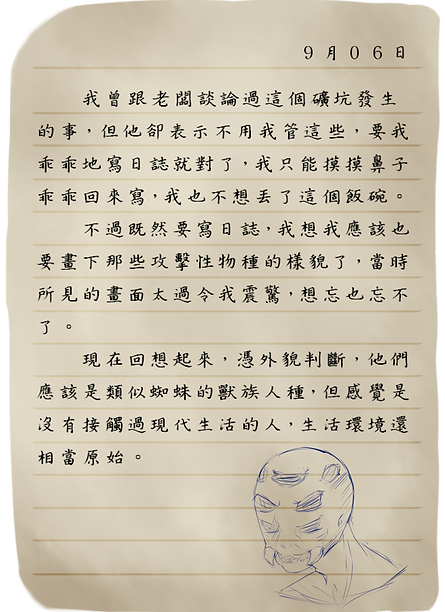 9月06日
我曾跟老闆談論過這個礦坑發生
的事，但他卻表示不用我管這些，要我
乖乖地寫日誌就對了，我只能摸摸鼻子
乖乖回來寫，我也不想丟了這個飯碗。
不過既然要寫日誌，我想我應該也
要畫下那些攻擊性物種的樣貌了，當時
所見的畫面太過令我震驚，想忘也忘不
了。
現在回想起來，憑外貌判斷，他們
應該是類似蜘蛛的獸族人種，但感覺是
沒有接觸過現代生活的人，生活環境還
相當原始。